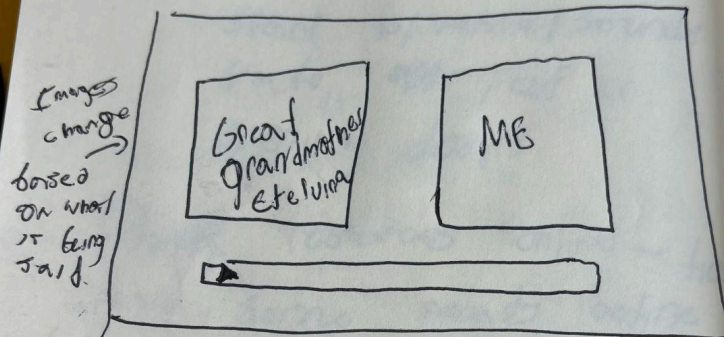 Images
change
based
on what
is being
said.
Great
grandmother
Etelvina
ME